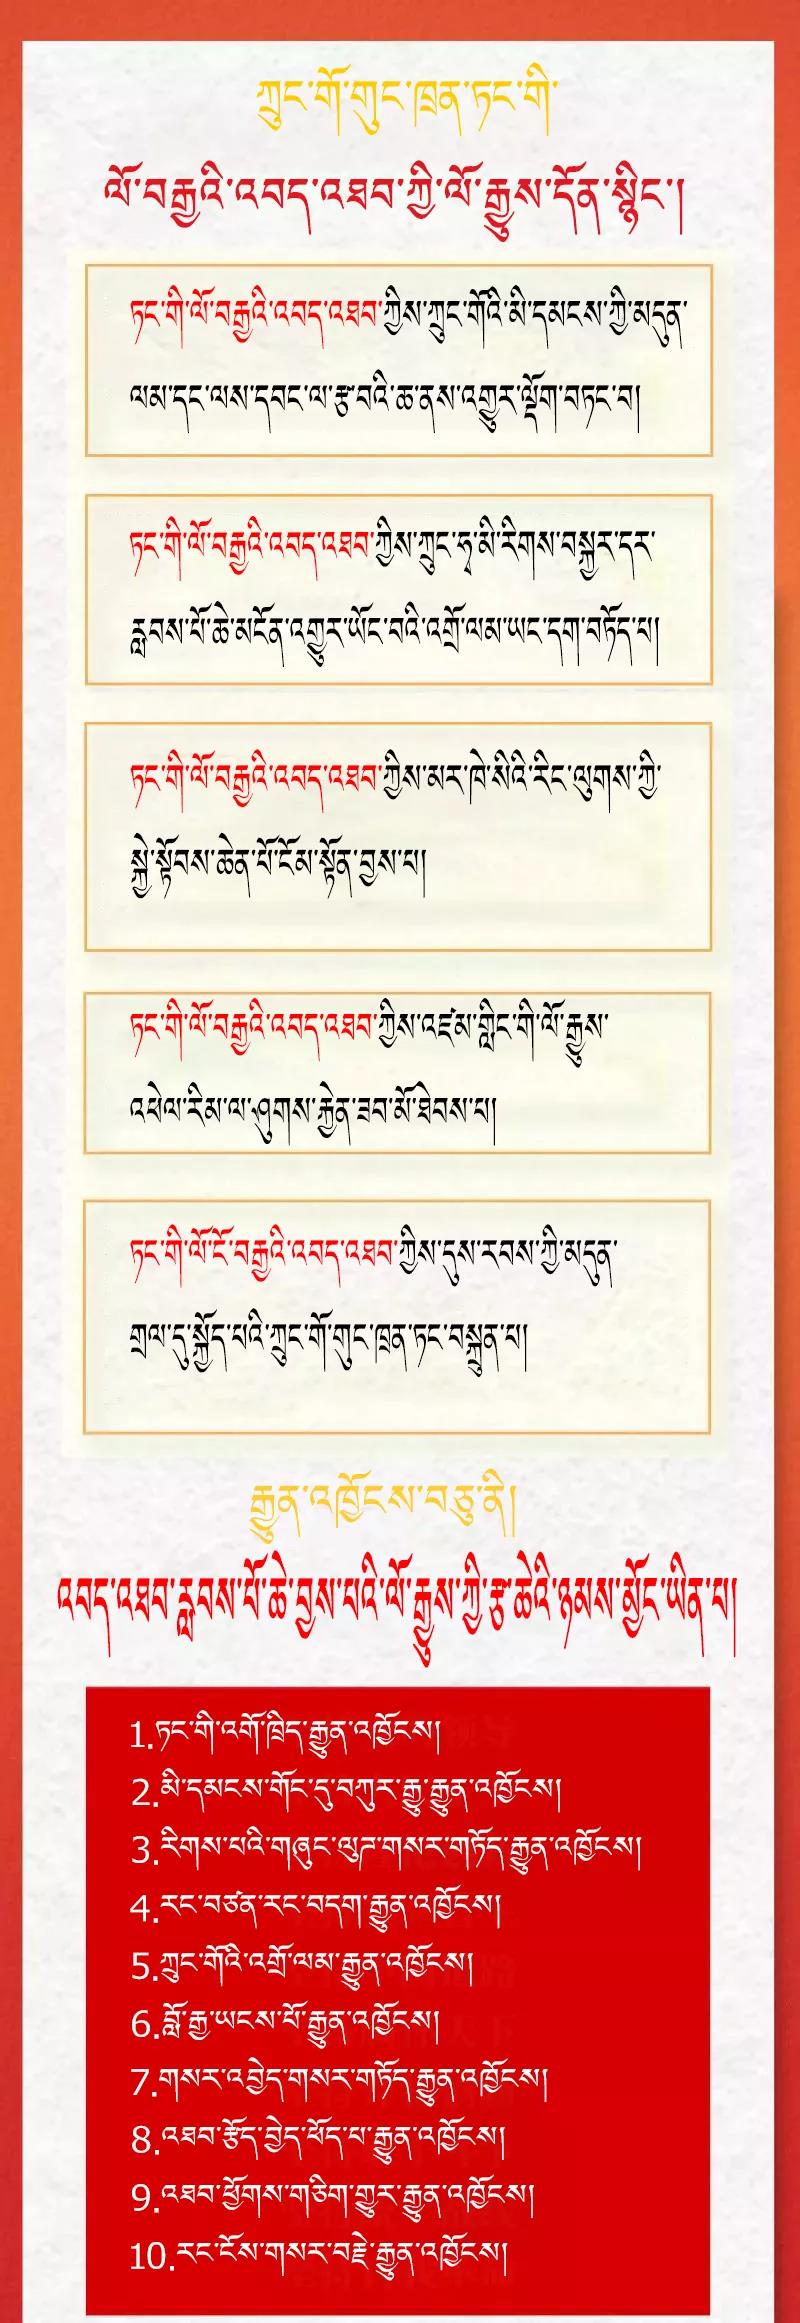 ཀྲུང་གོ་གུང་ཁྲན་ཏང་གི་
ལོ་བརྒྱའི་འབད་འཐབ་ཀྱི་ལོ་རྒྱུས་དོན་སྙིང་།
ཏང་གི་ལོ་བརྒྱའི་འབད་འཐབ་ཀྱིས་ཀྲུང་གོའི་མི་དམངས་ཀྱི་མདུན་
ལམ་དང་ལས་དབང་ལ་རྩ་བའི་ཆ་ནས་འགྱུར་ལྡོག་བཏང་བ།
ཏང་གི་ལོ་བརྒྱའི་འབད་འཐབ་ཀྱིས་ཀྲུང་ཧྭ་མི་རིགས་བསྐྱར་དར་
རླབས་པོ་ཆེ་མངོན་འགྱུར་ཡོང་བའི་འགྲོ་ལམ་ཡང་དག་བཏོད་པ།
ཏང་གི་ལོ་བརྒྱའི་འབད་འཐབ་ཀྱིས་མར་ཁེ་སིའི་རིང་ལུགས་ཀྱི་
སྐྱེ་སྟོབས་ཆེན་པོ་ངོམ་སྟོན་བྱས་པ།
ཏང་གི་ལོ་བརྒྱའི་འབད་འཐབ་ཀྱིས་འཛམ་གླིང་གི་ལོ་རྒྱུས་
འཕེལ་རིམ་ལ་ཤུགས་རྐྱེན་ཟབ་མོ་ཐེབས་པ།
ཏང་གི་ལོ་ངོ་བརྒྱའི་འབད་འཐབ་ཀྱིས་དུས་རབས་ཀྱི་མདུན་
གྲལ་དུ་སྐྱོད་པའི་ཀྲུང་གོ་གུང་ཁྲན་ཏང་བསྐྲུན་པ།
རྒྱུན་འཁྱོངས་བཅུ་ནི།
འབད་འཐབ་རླབས་པོ་ཆེ་བྱས་པའི་ལོ་རྒྱུས་ཀྱི་རྩ་ཆེའི་ཉམས་མྱོང་ཡིན་པ།
1.ཏང་གི་འགོ་ཁྲིད་རྒྱུན་འཁྱོངས།
2.མི་དམངས་གོང་དུ་བཀུར་རྒྱུ་རྒྱུན་འཁྱོངས།
3.རིགས་པའི་གཞུང་ལུཊ་གསར་གཏོད་རྒྱུན་འཁྱོངས།
4.རང་བཙན་རང་བདག་རྒྱུན་འཁྱོངས།
5.ཀྲུང་གོའི་འགྲོ་ལམ་རྒྱུན་འཁྱོངས།
6.བློ་རྒྱ་ཡངས་པོ་རྒྱུན་འཁྱོངས།
7.གསར་འབྱེད་གསར་གཏོད་རྒྱུན་འཁྱོངས།
8.འཐབ་རྩོད་བྱེད་ཕོད་པ་རྒྱུན་འཁྱོངས།
9.འཐབ་ཕྱོགས་གཅིག་གྱུར་རྒྱུན་འཁྱོངས།
10.རང་ངོས་གསར་བརྗེ་རྒྱུན་འཁྱོངས།